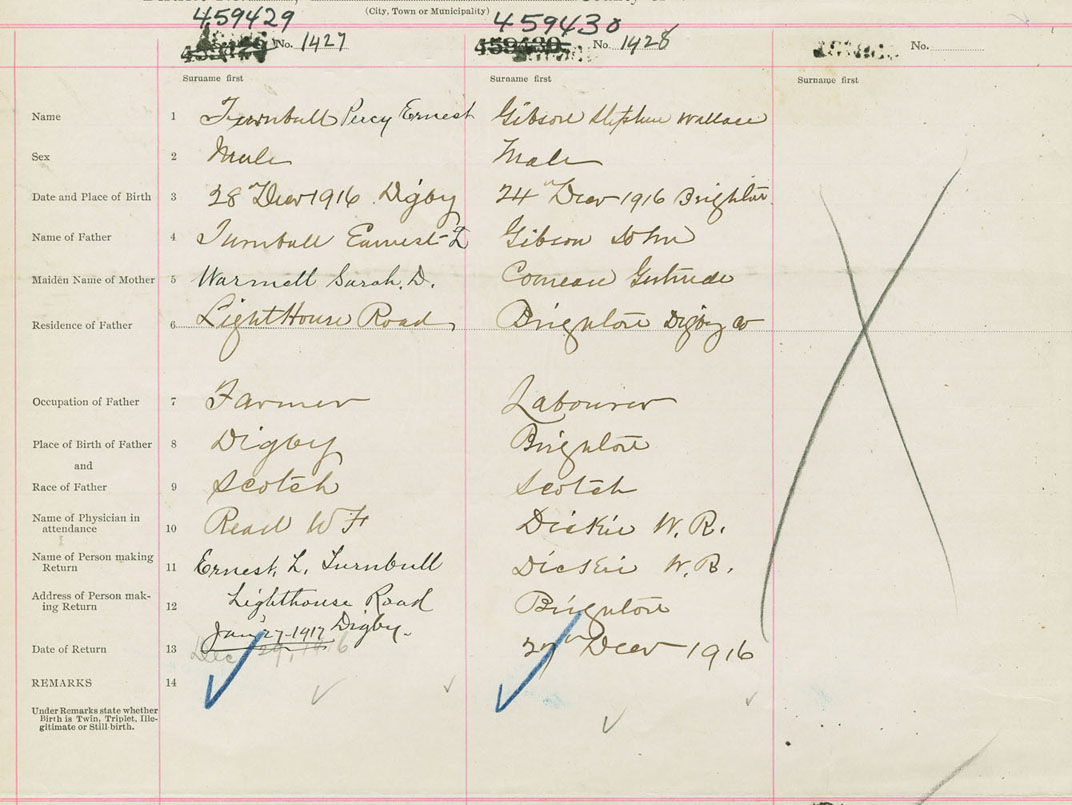 (City, Town or Municipality)
459429 459430
No. 1427 459430 No. 1428 No.
Surname first Surname first Surname first
Name 1 Turnbull Percy Ernest Gibson Stephen Wallace
Sex 2 Male Male
Date and Place of Birth 3 28 Decr 1916 Digby 24th Decr 1916 Brighton
Name of Father 4 Turnbull Earnest L Gibson John
Maiden Name of Mother 5 Warmell Sarah. D. Comeau Gertrude
Residence of Father 6 LightHouse Road Brighton Digby Co
Occupation of Father 7 Farmer Labourer
Place of Birth of Father 8 Digby Brighton
and
Race of Father 9 Scotch Scotch
Name of Physician in
attendance 10 Read W F Dickie W. R.
Name of Person making
Return 11 Ernest. L. Turnbull Dickie W. R.
Address of Person mak-
ing Return 12 Lighthouse Road Brighton
Jany 27-1917 Digby.
Date of Return 13 Dec 29, 1916 27th Decr 1916
REMARKS 14
Under Remarks state whether
Birth is Twin, Triplet, Ille-
gitimate or Still-birth.